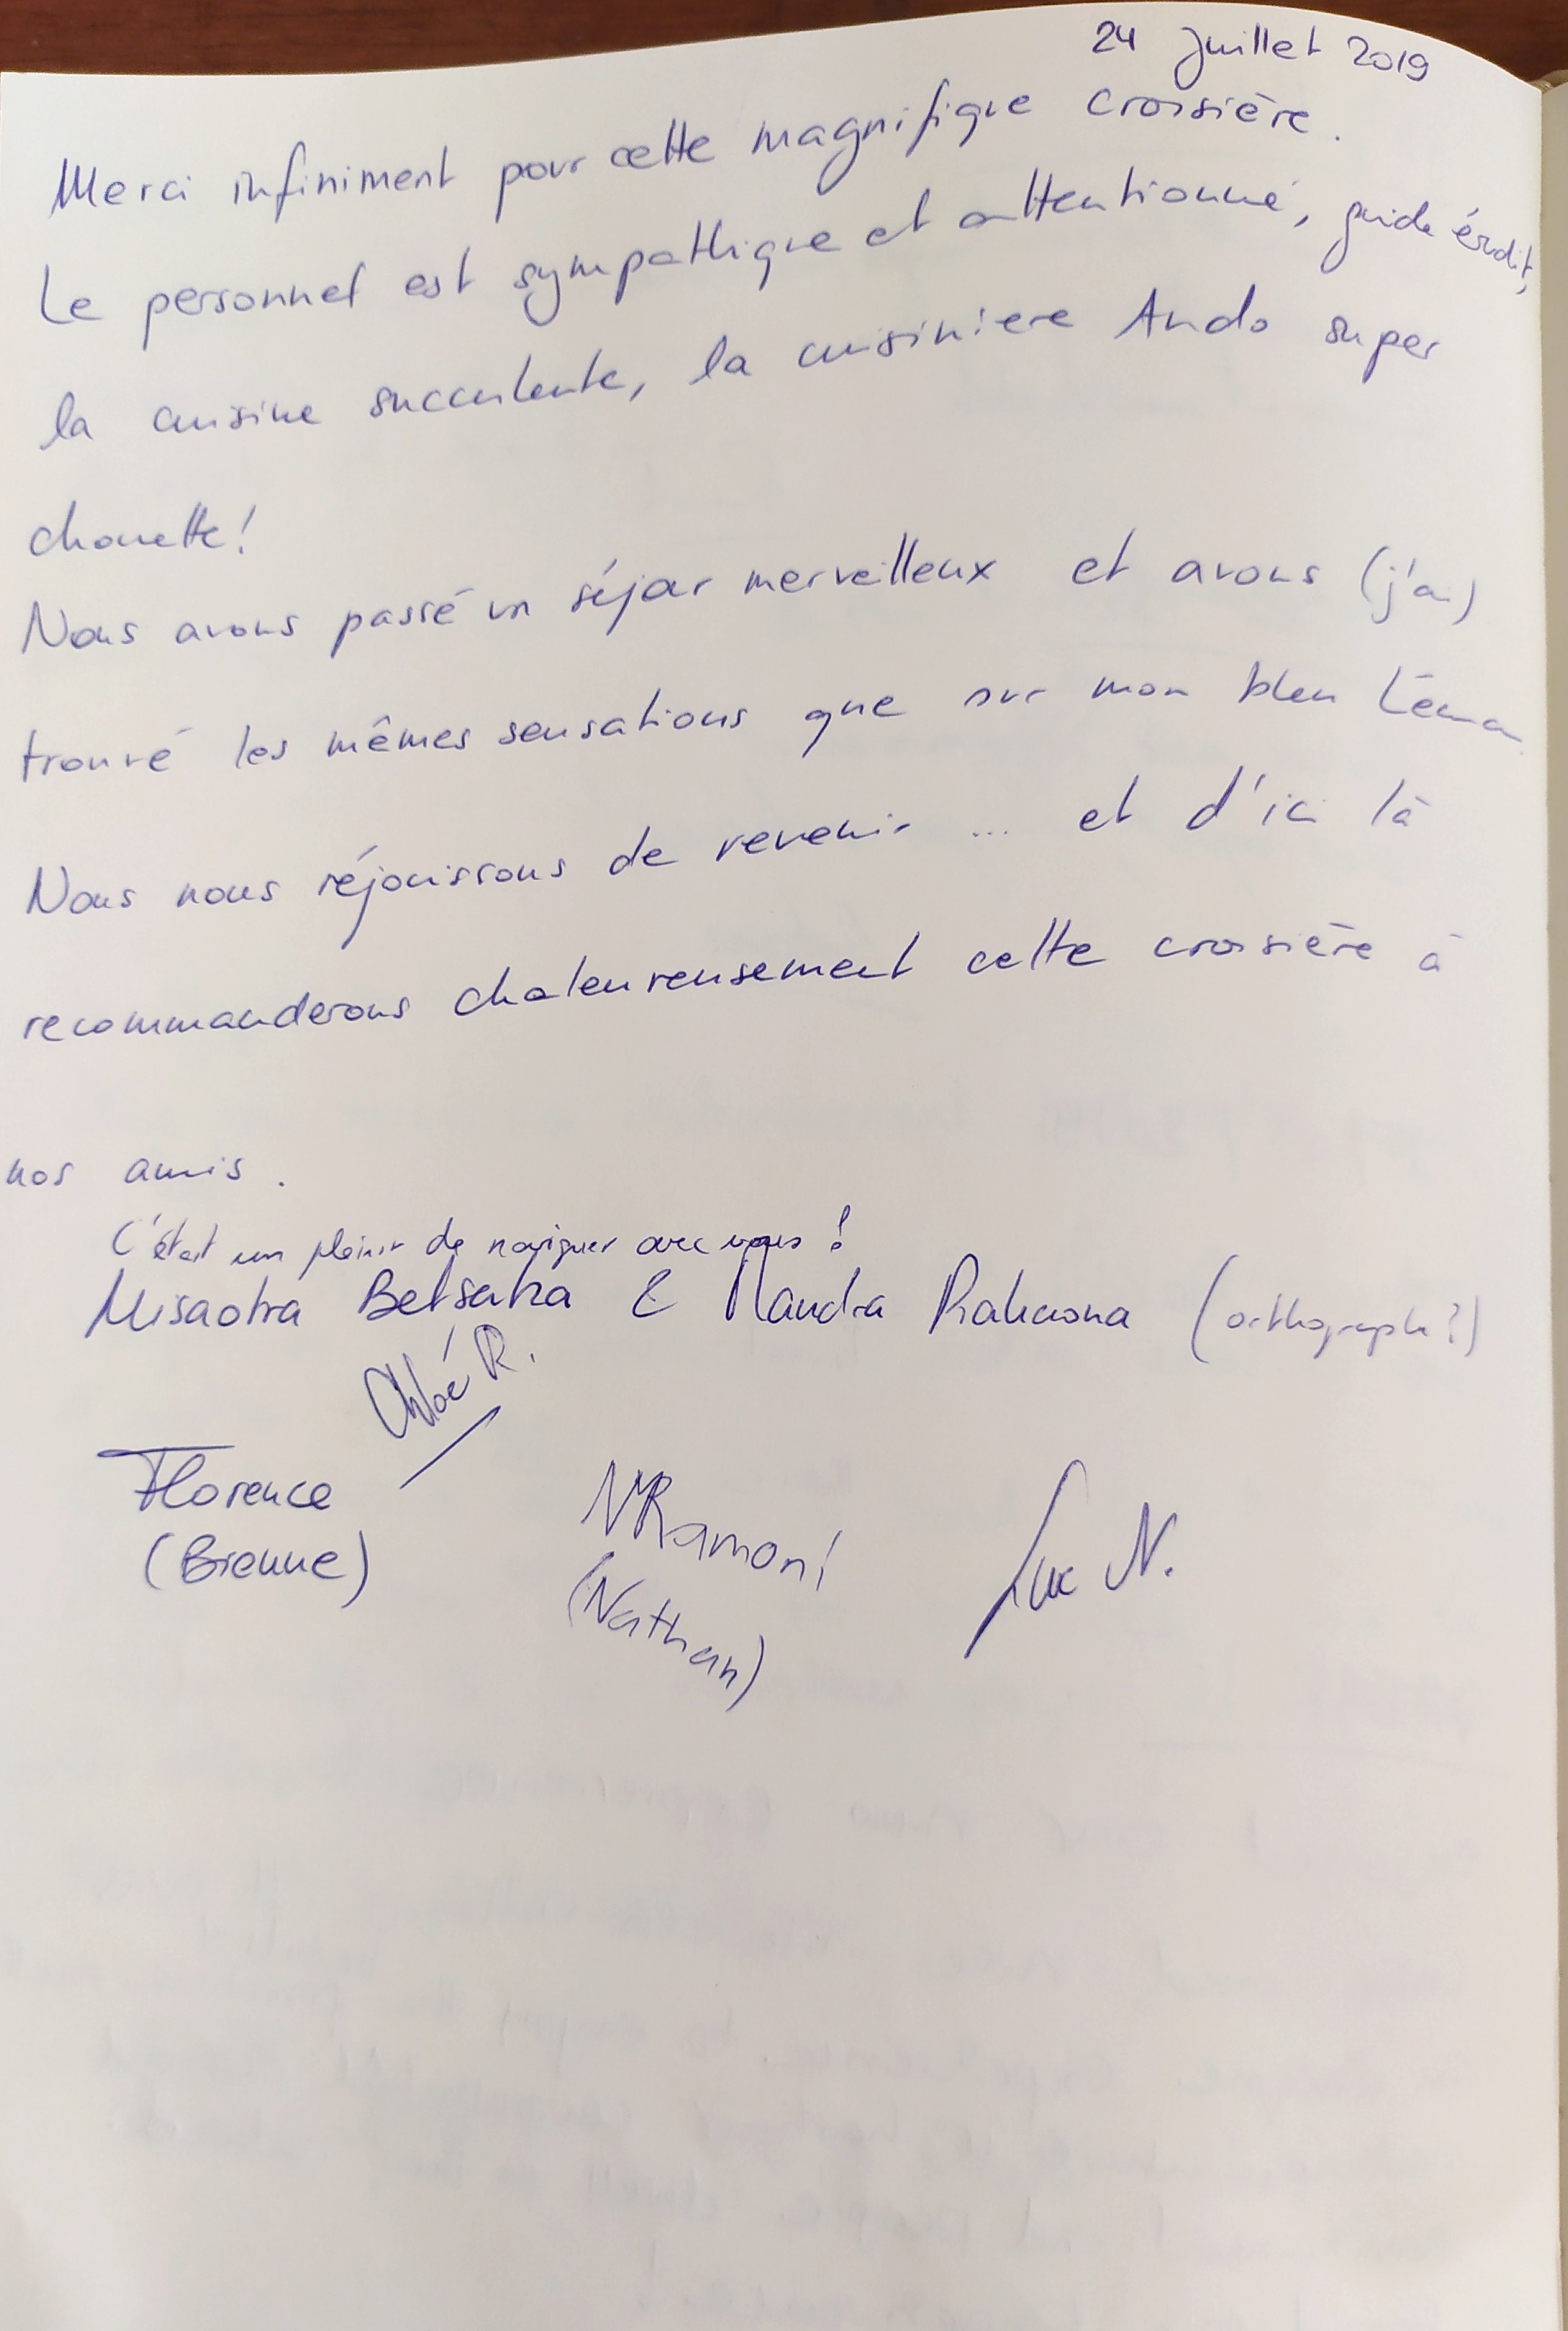 24 Juillet 2019
Merci infiniment pour cette magnifique croisière.
Le personnel est sympathique et attentionné, guide érudit,
la cuisine succulente, la cuisiniere Ando super
chouette!
Nous avons passé un séjour merveilleux et avons (j'ai)
trouvé les mêmes sensations que sur mon bleu Léman
Nous nous réjouissons de revenir ... et d'ici là
recommanderons chaleureusement cette croisière à
nos amis.
C'était un plaisir de naviguer avec vous !
Misaotra Betsaka & Mandra Pahaona (orthographe?)
Chloé R.
Florence
(Bienne)
NRamoni
(Nathan)
Luc N.